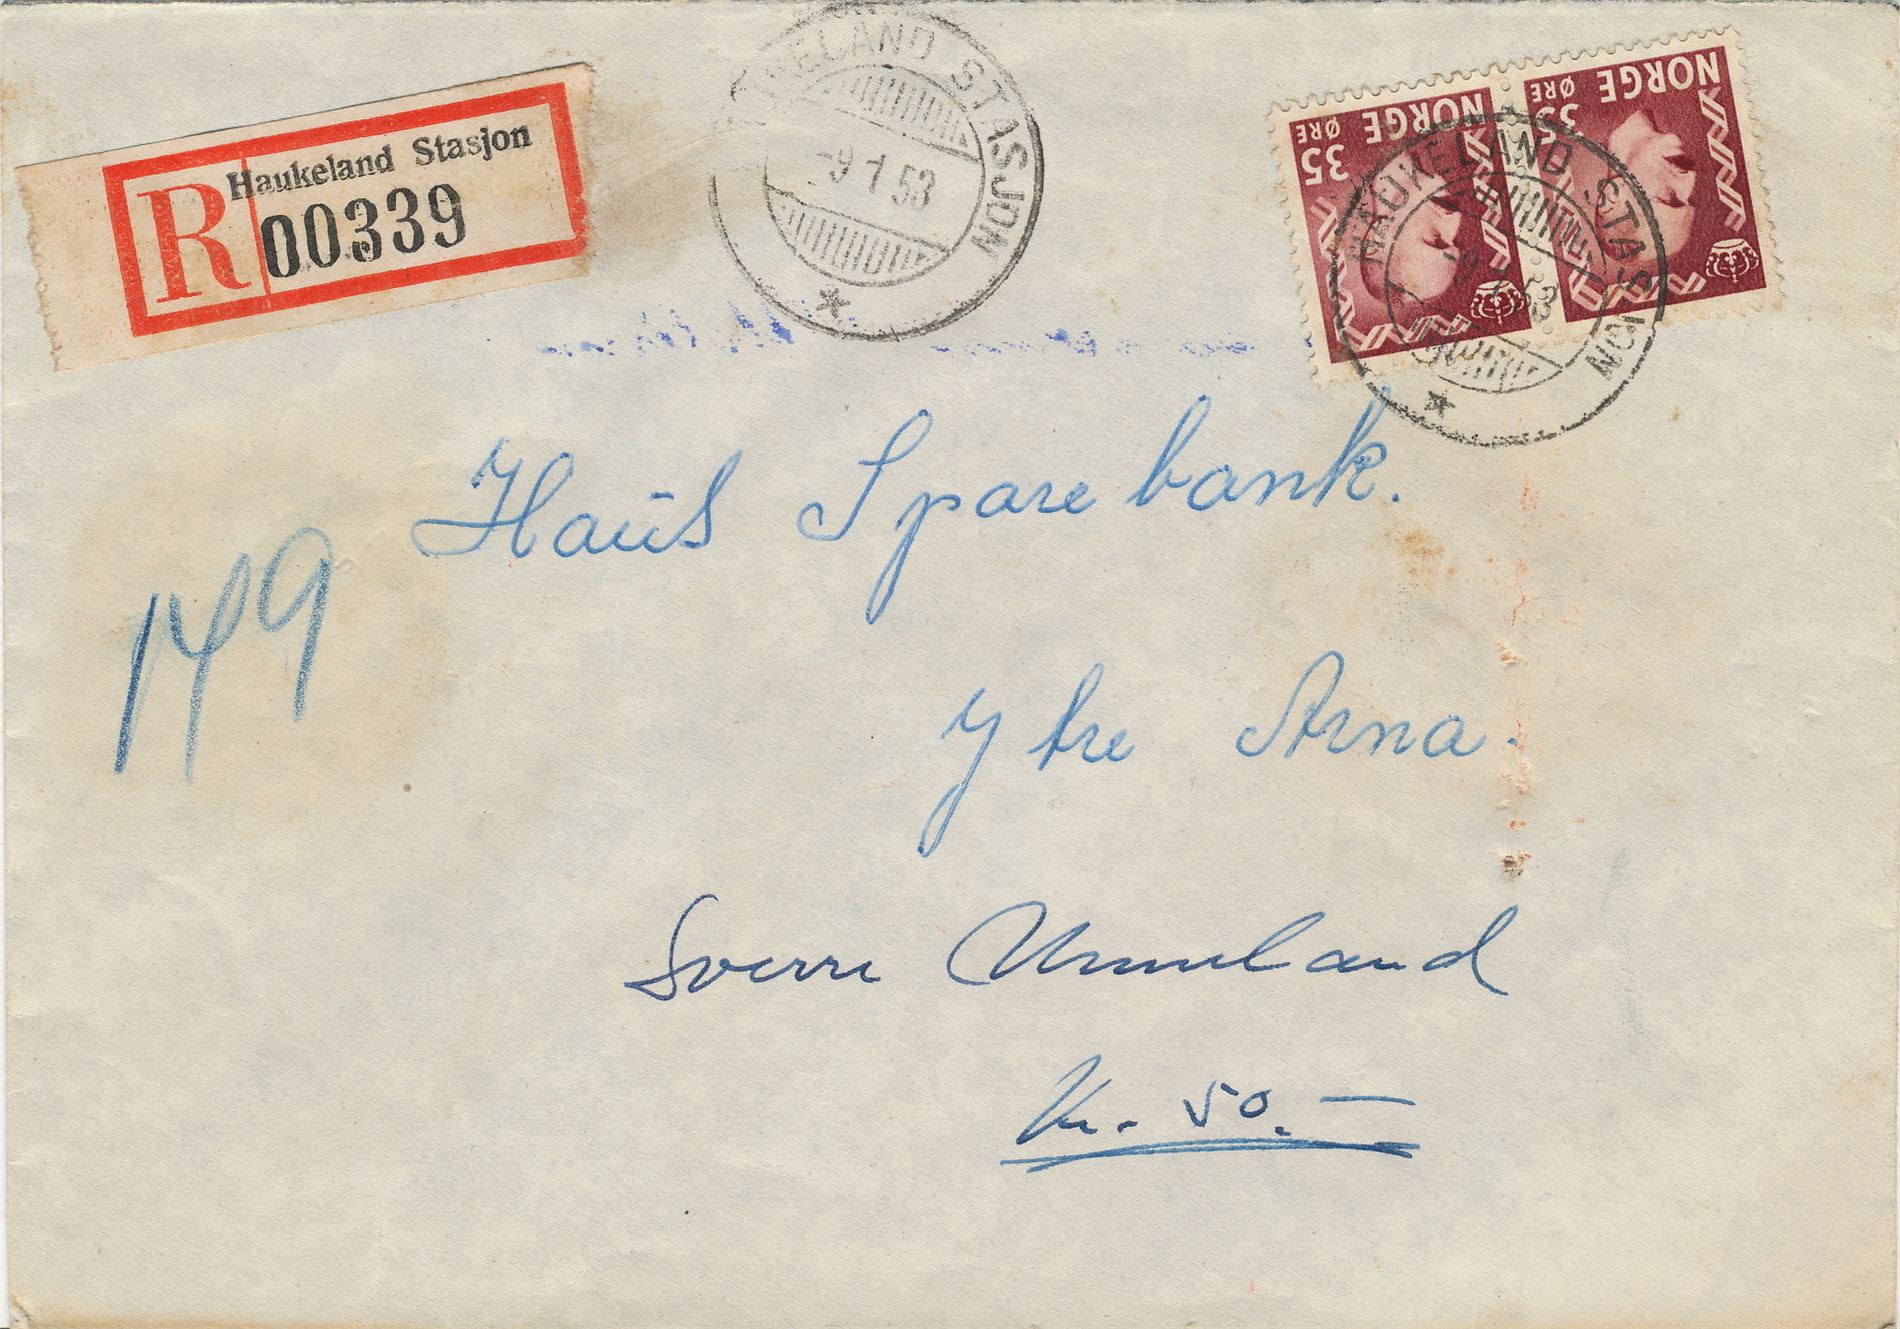 Haukeland Stasjon
R 00339
HAUKELAND STASJON
-9 1 53
NORGE
35 ØRE
NORGE
35 ØRE
HAUKELAND STASJON
-9 1 53
Haus Sparebank.
149
Ytre Arna.
Sverre Unneland
Kr. 50.—